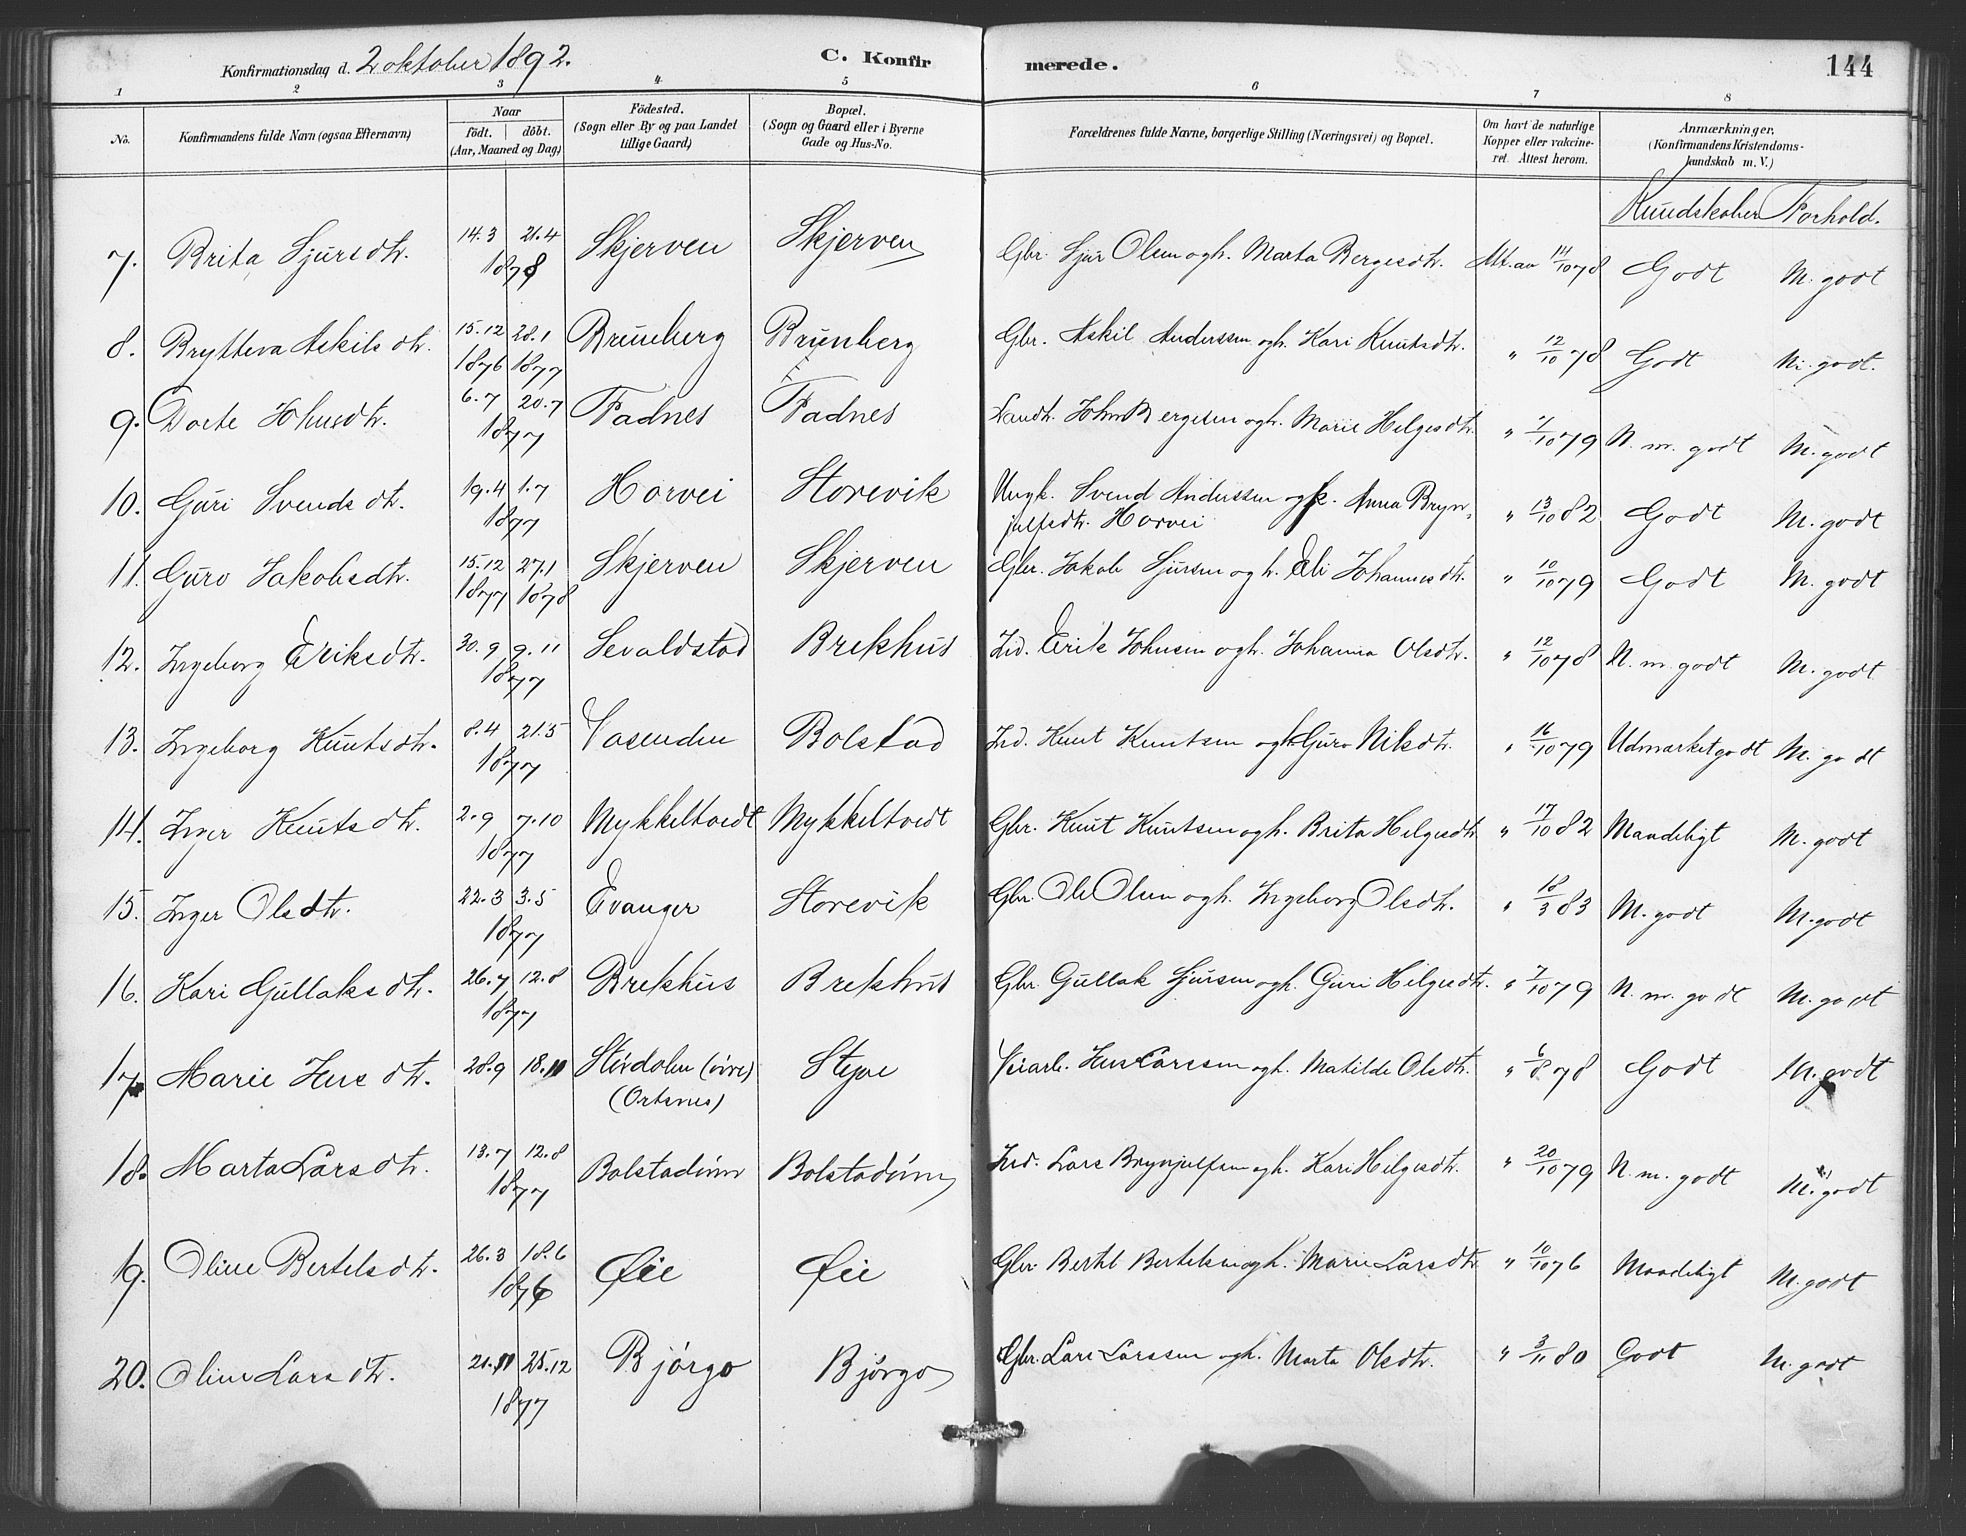 Konfirmationsdag d. 2 oktober 1892. C. Konfirmerede. 144
1 2 3 4 5 6 7 8
No. Konfirmandens fulde Navn (ogsaa Efternavn) Naar födt. döbt. (Aar, Maaned og Dag) Födested. (Sogn eller By og paa Landet tillige Gaard) Bopæl. (Sogn og Gaard eller i Byerne Gade og Hus-No. Forældrenes fulde Navne, borgerlige Stilling (Næringsvei) og Bopæl. Om havt de naturlige Kopper eller vakcineret. Attest herom. Anmærkninger. (Konfirmandens Kristendomskundskab m. V.)
Kundskaber Forhold.
7. Brita Sjursdtr. 14.3 21.4 1878 Skjerven Skjerven Gbr. Sjur Olsen og h. Marta Bergesdtr. Att. av 14/10 78 Godt M. godt
8. Brytteva Askilsdtr. 15.12 1876 28.1 1877 Brunberg Brunberg Gbr. Askil Anderssen og h. Kari Knutsdtr. " 12/10 78 Godt M. godt.
9. Dorte Johnsdtr. 6.7 20.7 1877 Fadnes Fadnes Landh. John Bergesen og h. Marie Helgesdtr. " 7/10 79 N. m. godt M. godt
10. Guri Svendsdtr. 19.4 1.7 1877 Horvei Storevik Ungk. Svend Anderssen og p. Anna Brynjulfsdtr. Horvei " 13/10 82 Godt M. godt
11. Guro Jakobsdtr. 15.12 1877 27.1 1878 Skjerven Skjerven Gbr. Jakob Sjursen og h. Eli Johannesdtr. " 10/10 79 Godt M. godt
12. Ingeborg Eriksdtr. 30.9 9.11 1877 Sevaldstad Brekhus Ind. Erik Johnsen og h. Johanna Olsdtr. " 12/10 78 N. m. godt M. godt
13. Ingeborg Knutsdtr. 8.4 21.5 1877 Vasenden Bolstad Ind. Knut Knutsen og h. Guro Nilsdtr. " 16/10 79 Udmærket godt M. godt
14. Inger Knutsdtr. 2.9 7.10 1877 Mykkeltvedt Mykkeltvedt Gbr. Knut Knutsen og h. Brita Helgesdtr. " 17/10 82 Maadeligt M. godt
15. Inger Olsdtr. 22.3 3.5 1877 Evanger Storevik Gbr. Ole Olsen og h. Ingeborg Olsdtr. " 18/3 83 M. godt M. godt
16. Kari Gullaksdtr. 26.7 12.8 1877 Brekhus Brekhus Gbr. Gullak Sjursen og h. Guri Helgesdtr. " 7/10 79 N. m. godt M. godt
17. Marie Jensdtr. 28.9 18.11 Stördalen (övre) (Ortsnes) Styve Veiarb. Jens Larssen og h. Matilde Olsdtr. " 6/8 78 Godt M. godt
18. Marta Larsdtr. 13.7 12.8 1877 Bolstadören Bolstadören Ind. Lars Brynjulfsen og h. Kari Helgesdtr. " 20/10 79 N. m. godt M. godt
19. Oline Bertelsdtr. 26.3 18.6 1876 Øie Øie Gbr. Bertel Bertelsen og h. Marie Larsdtr. " 10/10 76 Maadeligt M. godt
20. Oline Larsdtr. 21.11 25.12 1877 Bjørgo Bjørgo Gbr. Lars Larssen og h. Marta Olsdtr. " 3/11 80 Godt M. godt